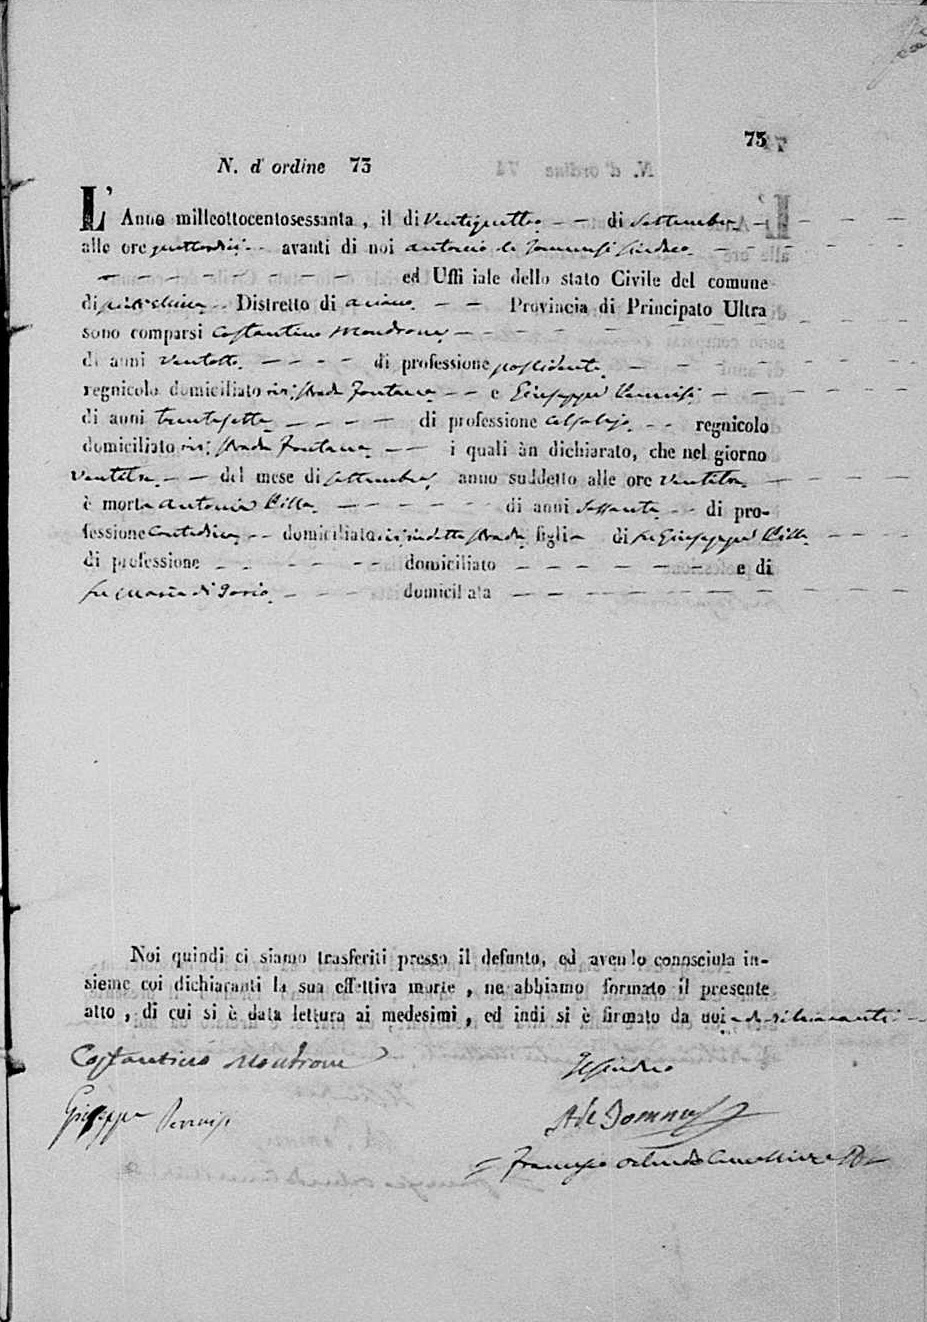 73
N. d' ordine 73
L' Anno milleottocentosessanta, il di Ventiquattro di Settembre
alle ore quattordici avanti di noi Antonio de Dominicis Sindaco
ed Uffi iale dello stato Civile del comune
di Distretto di Ariano Provincia di Principato Ultra
sono comparsi Costantino Mondrone
di anni Ventotto di professione possidente
regnicolo domiciliato ivi, strada Fontana e Giuseppe
di anni trentasette di professione regnicolo
domiciliato ivi, strada Fontana i quali àn dichiarato, che nel giorno
Ventitre del mese di Settembre anno suddetto alle ore Ventitre
è morta Antonia Villa di anni Sessanta di pro-
fessione Contadina domiciliata ivi sudetta strada figlia di fu Giuseppe Villa
di professione domiciliato e di
fu Maria di Iorio domicil ata
Noi quindi ci siamo trasferiti presso il defunto, ed aven lo conosciuta in-
sieme coi dichiaranti la sua effettiva morte, ne abbiamo formato il presente
atto, di cui si è data lettura ai medesimi, ed indi si è firmato da noi e dichiaranti
Costantino Mondrone Il Sindaco
Giuseppe A de Dominicis
Francesco Orlando Cancelliere